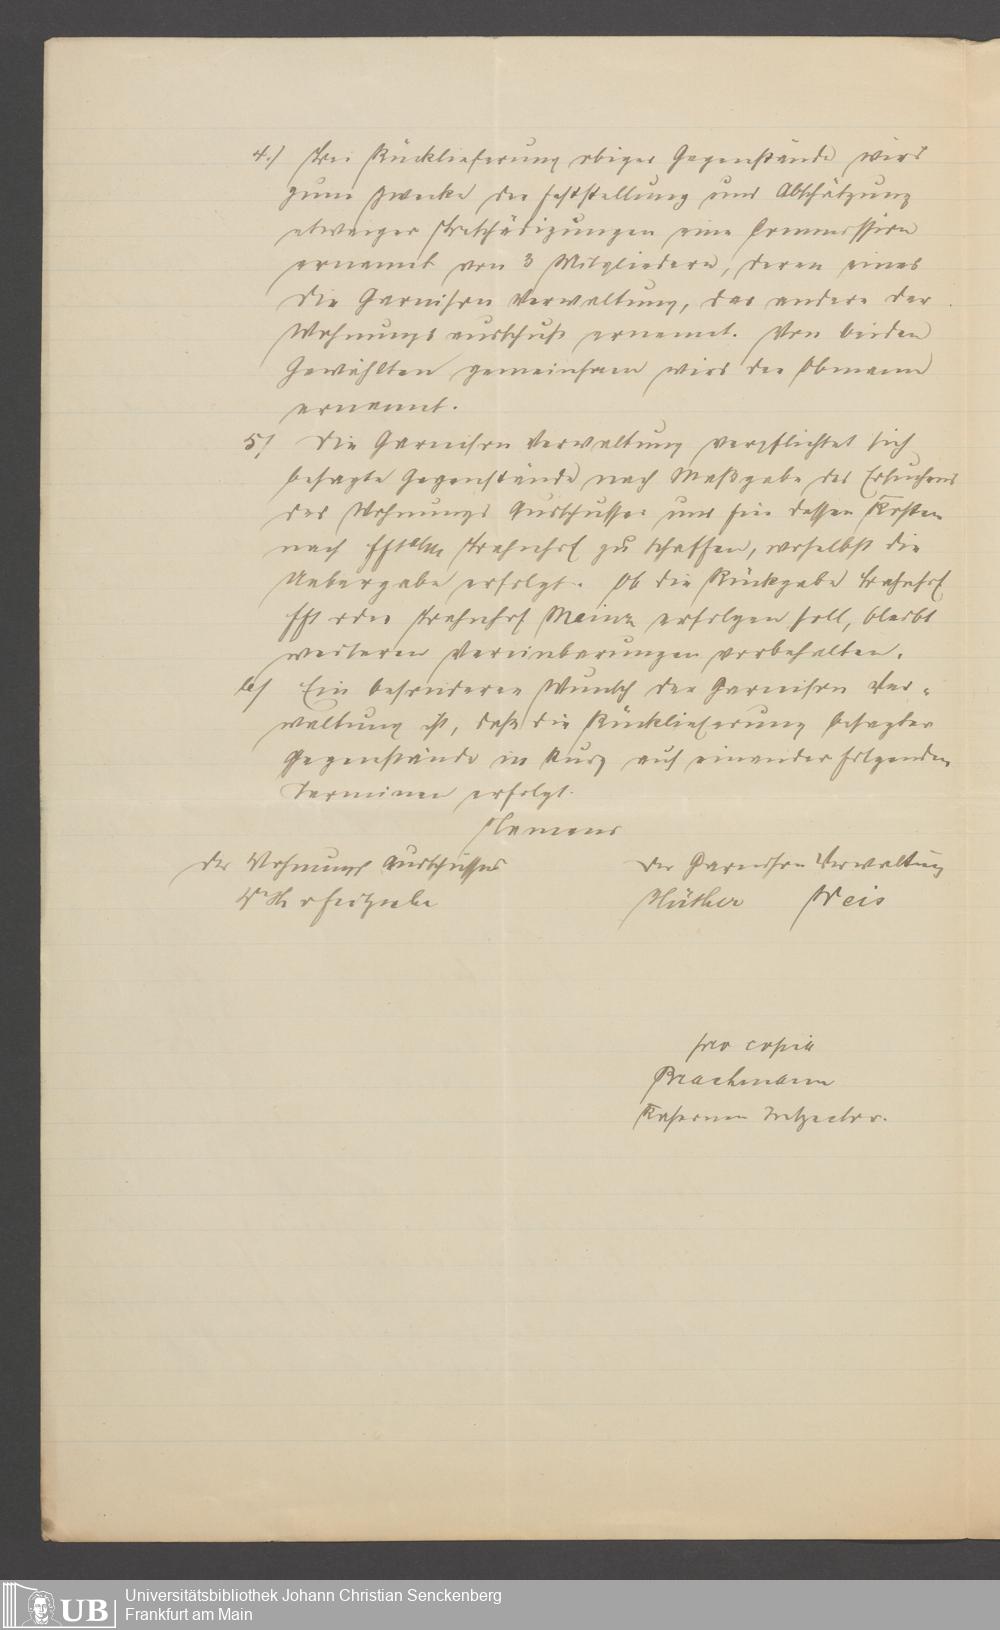 4.) Bei Rücklieferung obiger Gegenstände wird
zum Zwecke der Feststellung und Abschätzung
etwaiger Beschädigungen eine Commission
ernannt von 3 Mitgliedern, deren eines
die Garnison Verwaltung, das andere der
Wohnungsausschuß ernennt. Von beiden
Gewählten gemeinsam wird der Obmann
ernannt.
5) Die Garnison Verwaltung verpflichtet sich
besagte Gegenstände nach Maßgabe des Ersuchens
des Wohnungs Ausschusses und für dessen Kosten
nach Bahnhof zu schaffen, woselbst die
Uebergabe erfolgt. Ob die Rückgabe Bahnhof
Fft oder Bahnhof Mainz erfolgen soll, bleibt
weiteren Vereinbarungen vorbehalten.
6) Ein besonderer Wunsch der Garnison Ver-
waltung ist, daß die Rücklieferung besagter
Gegenstände in kurz auf einander folgenden
Terminen erfolgt.
Namens
des Wohnungs Ausschusses
der Garnison Verwaltung
Weis
pro copia
Brachmann
Kasernen Inspector.
Universitätsbibliothek Johann Christian Senckenberg
Frankfurt am Main
UB